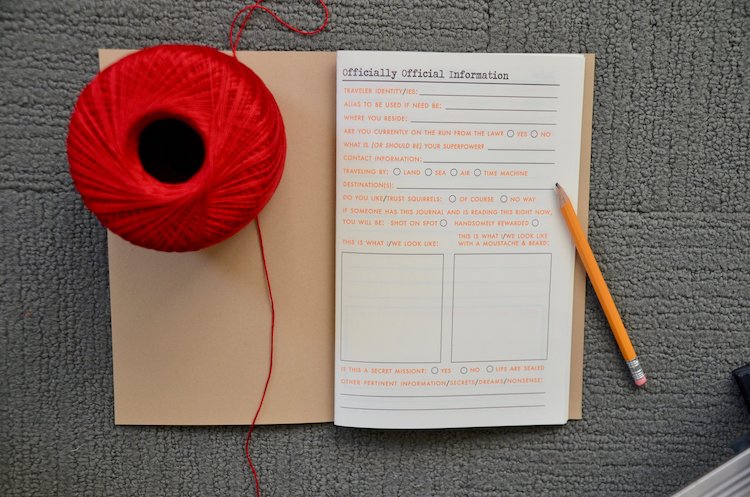 Officially Official Information
TRAVELER IDENTITY/IES:
ALIAS TO BE USED IF NEED BE:
WHERE YOU RESIDE:
ARE YOU CURRENTLY ON THE RUN FROM THE LAW? YES NO
WHAT IS (OR SHOULD BE) YOUR SUPERPOWER?
CONTACT INFORMATION:
TRAVELING BY: LAND SEA AIR TIME MACHINE
DESTINATION(S):
DO YOU LIKE/TRUST SQUIRRELS: OF COURSE NO WAY
IF SOMEONE HAS THIS JOURNAL AND IS READING THIS RIGHT NOW,
YOU WILL BE: SHOT ON SPOT HANDSOMELY REWARDED
THIS IS WHAT I/WE LOOK LIKE:
THIS IS WHAT I/WE LOOK LIKE
WITH A MOUSTACHE & BEARD:
IS THIS A SECRET MISSION?: YES NO LIPS ARE SEALED
OTHER PERTINENT INFORMATION/SECRETS/DREAMS/NONSENSE: